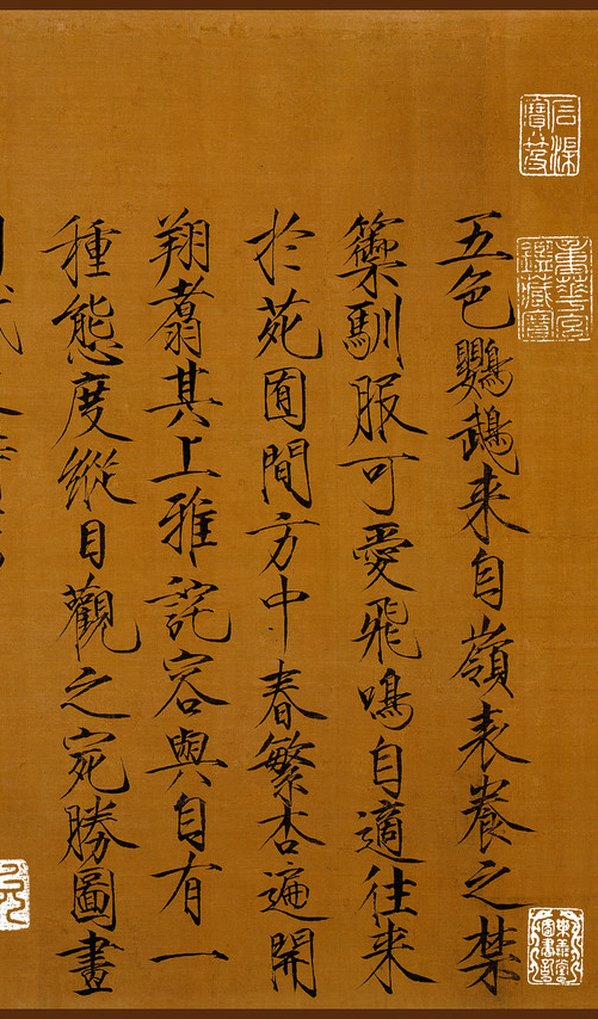 石渠寶笈
重華宮鑑藏寶
五色鸚鵡来自嶺表養之禁
籞馴服可愛飛鳴自適往来
扵苑囿間方中春繁杏遍開
翔翥其上雅詫容與自有一
種態度縱目觀之宛勝圖畫